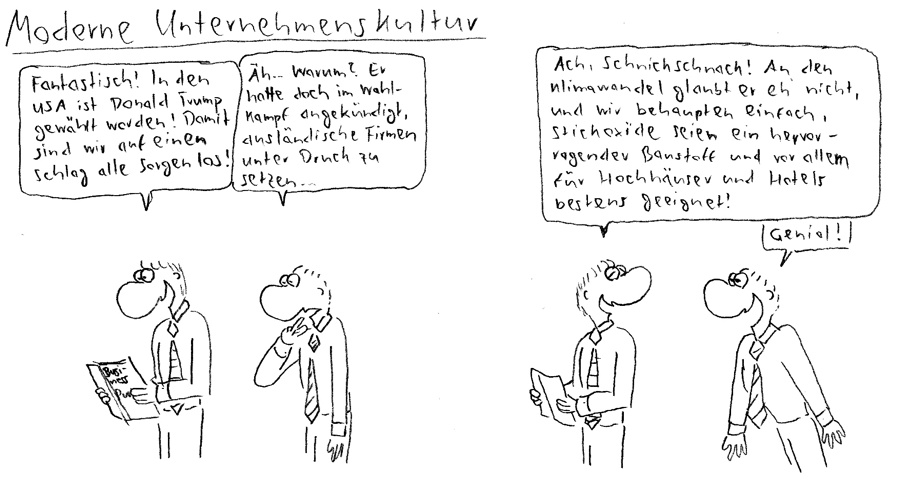 Moderne Unternehmenskultur
Fantastisch! In den
USA ist Donald Trump
gewählt worden! Damit
sind wir auf einen
Schlag alle Sorgen los!
Äh... Warum? Er
hatte doch im Wahl-
kampf angekündigt,
ausländische Firmen
unter Druck zu
setzen...
Busi-
ness
Ach, Schnickschnack! An den
Klimawandel glaubt er eh nicht,
und wir behaupten einfach,
Stickoxide seien ein hervor-
ragender Baustoff und vor allem
für Hochhäuser und Hotels
bestens geeignet!
Genial!